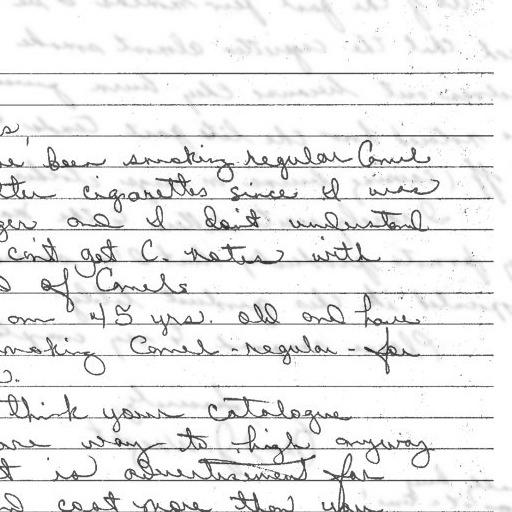 s,
ve been smoking regular Camel
tter cigarettes since I was
ger and I don't understand
can't get C. notes with
of Camels
am 45 yrs. old and have
moking Camel - regular - for
think your catalogue
are way to high anyway
t is advertisement for
nd cost more than you